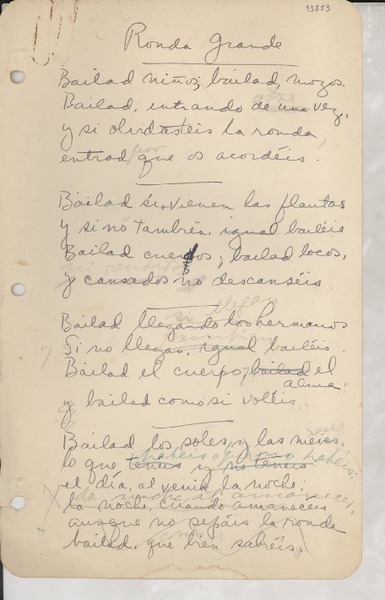 19853
Ronda Grande
Bailad niños, bailad mozos.
Bailad, entrando de una vez,
y si olvidasteis la ronda
por
entrad que os acordéis.
Bailad si vienen las flautas
y si no también, igual bailéis
Bailad cuerdos, bailad locos,
y cansados no descanséis.
si llegan
Bailad llegando los hermanos
también
Si no llegan, igual bailéis.
Bailad el cuerpo, bailad el
alma,
y bailad como si voléis.
Bailad los soles, y las mieses,
lo que tenéis y no tenéis
el día, al venir la noche,
la noche, cuando amanecéis
aunque no sepáis la ronda
bailad, que bien sabréis.